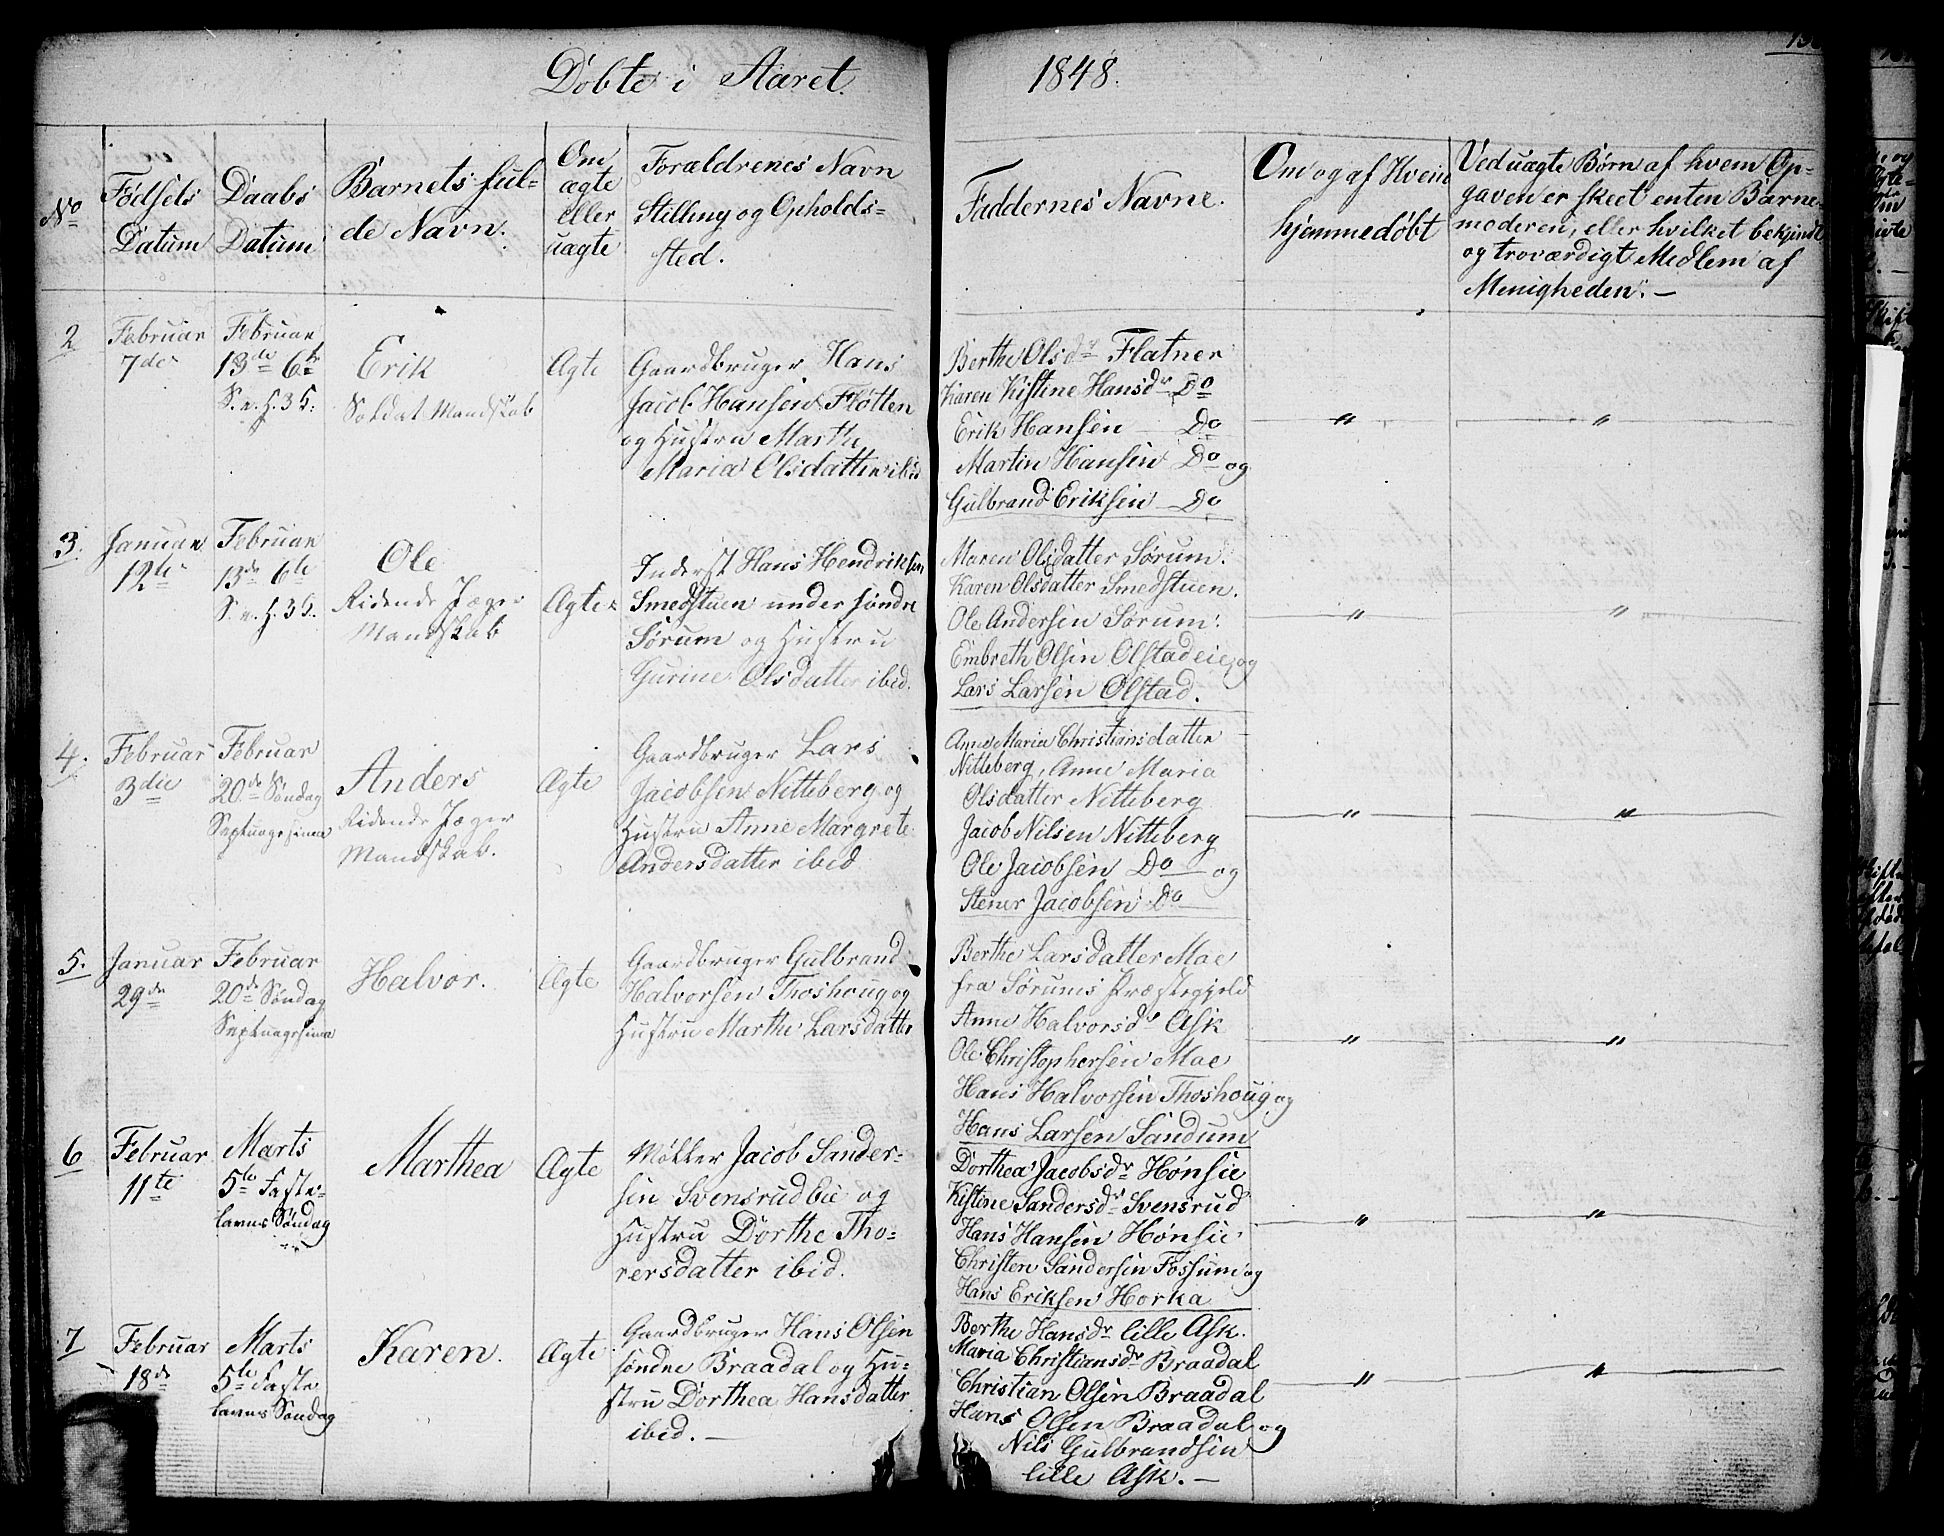 Döbte i Aaret 1848.
No
Födsels Datum
Daabs Datum
Barnets ful-
de Navn.
Om
ægte
eller
uægte
Forældrenes Navn
Stilling og Opholds=
sted.
Faddernes Navne.
Om og af Hvem
hjemmedöbt
Ved uægte Börn af hvem Op-
gaven er skeet enten Barne
moderen, eller hvilket bekjendt
og troværdigt Medlem af
Menigheden. —
2
Februar
7de
Februar
13de 6te
S. e. H. 3 K.
Erik
Soldat Mandskab
Ægte
Gaardbruger Hans
Jacob Hansen Fløtten
og Hustru Marthe
Maria Olsdatter ibid
Berthe Olsdr Flatner
Karen Kistine Hansdr Do
Erik Hansen — Do
Martin Hansen Do og
Gulbrand Eriksen — Do
"
"
3.
Januar
12te
Februar
13de 6te
S. e. H. 3 K.
Ole
Ridende Jæger
Mandskab
Ægte
Inderst Hans Hendriksen
Smedstuen under søndre
Sørum og Hustru
Gurine Olsdatter ibid.
Maren Olsdatter Sørum.
Karen Olsdatter Smedstuen.
Ole Andersen Sørum.
Embreth Olsen Olstadeie og
Lars Larsen Olstad.
"
"
4.
Februar
3die
Februar
20de Søndag
Septuagesima
Anders
Ridende Jæger
Mandskab.
Ægte
Gaardbruger Lars
Jacobsen Nitteberg og
Hustru Anne Margrete
Andersdatter ibid
Anne Maria Christiansdatter
Nitteberg, Anne Maria
Olsdatter Nitteberg
Jacob Nilsen Nitteberg
Ole Jacobsen Do og
Stener Jacobsen Do
"
"
5.
Januar
29de
Februar
20de Søndag
Septuagesima
Halvor.
Ægte
Gaardbruger Gulbrand
Halvorsen Thoshoug og
Hustru Marthe Larsdatter
Berthe Larsdatter Mae
fra Sørums Præstegjeld
Anne Halvorsdr Ask
Ole Christophersen Mae
Hans Halvorsen Thoshoug og
Hans Larsen Sandum
"
"
6
Februar
11te
Marts
5te Faste-
lavns Søndag
Marthea
Ægte
Møller Jacob Sander-
sen Svensrudbie og
Hustru Dorthe Tho-
rersdatter ibid.
Dorthea Jacobsdr Hønsie
Kistine Sandersdr Svensrud
Hans Hansen Hønsie
Christen Sandersen Fossum og
Hans Eriksen Horka
"
"
7
Februar
18de
Marts
5te Faste
lavns Søndag
Karen.
Ægte
Gaardbruger Hans Olsen
søndre Braadal og Hu-
stru Dorthea Hansdatter
ibid. —
Berthe Hansdr lille Ask.
Maria Christiansdr Braadal
Christian Olsen Braadal
Hans Olsen Braadal og
Nils Gulbrandsen
lille Ask. —
"
"